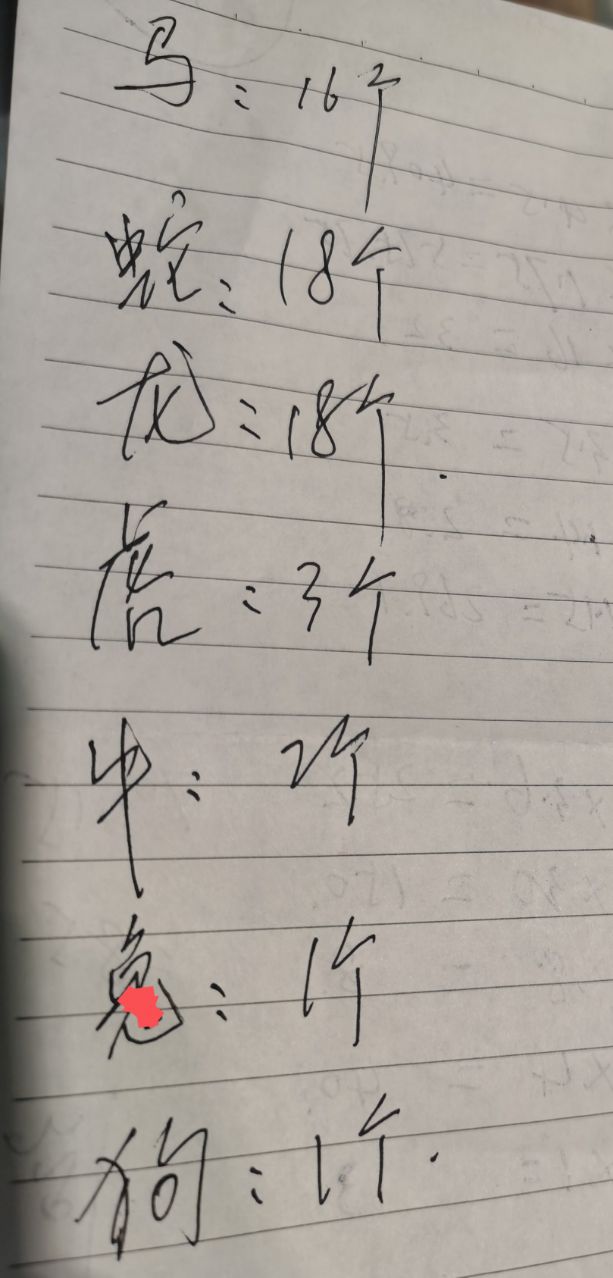 马：16个
蛇：18个
龙：18个.
虎：3个
牛：2个
兔：1个
狗：1个.